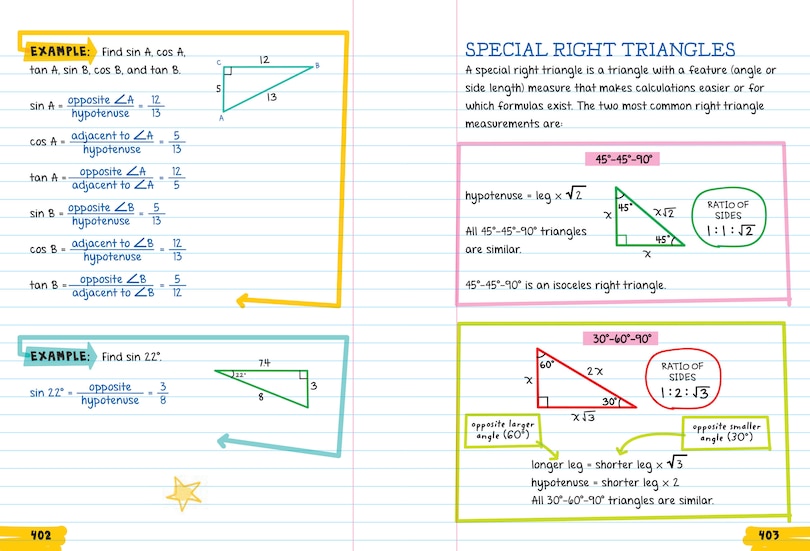 EXAMPLE: Find sin A, cos A,
tan A, sin B, cos B, and tan B.
C
12
B
5
13
A
sin A = opposite ∠A / hypotenuse = 12/13
cos A = adjacent to ∠A / hypotenuse = 5/13
tan A = opposite ∠A / adjacent to ∠A = 12/5
sin B = opposite ∠B / hypotenuse = 5/13
cos B = adjacent to ∠B / hypotenuse = 12/13
tan B = opposite ∠B / adjacent to ∠B = 5/12
EXAMPLE: Find sin 22°.
sin 22° = opposite / hypotenuse = 3/8
7.4
22°
3
8
402
SPECIAL RIGHT TRIANGLES
A special right triangle is a triangle with a feature (angle or
side length) measure that makes calculations easier or for
which formulas exist. The two most common right triangle
measurements are:
45°-45°-90°
hypotenuse = leg x √2
All 45°-45°-90° triangles
are similar.
45°-45°-90° is an isoceles right triangle.
45°
x
x√2
45°
x
RATIO OF
SIDES
1 : 1 : √2
30°-60°-90°
60°
x
2x
30°
x√3
RATIO OF
SIDES
1 : 2 : √3
opposite larger
angle (60°)
opposite smaller
angle (30°)
longer leg = shorter leg x √3
hypotenuse = shorter leg x 2
All 30°-60°-90° triangles are similar.
403